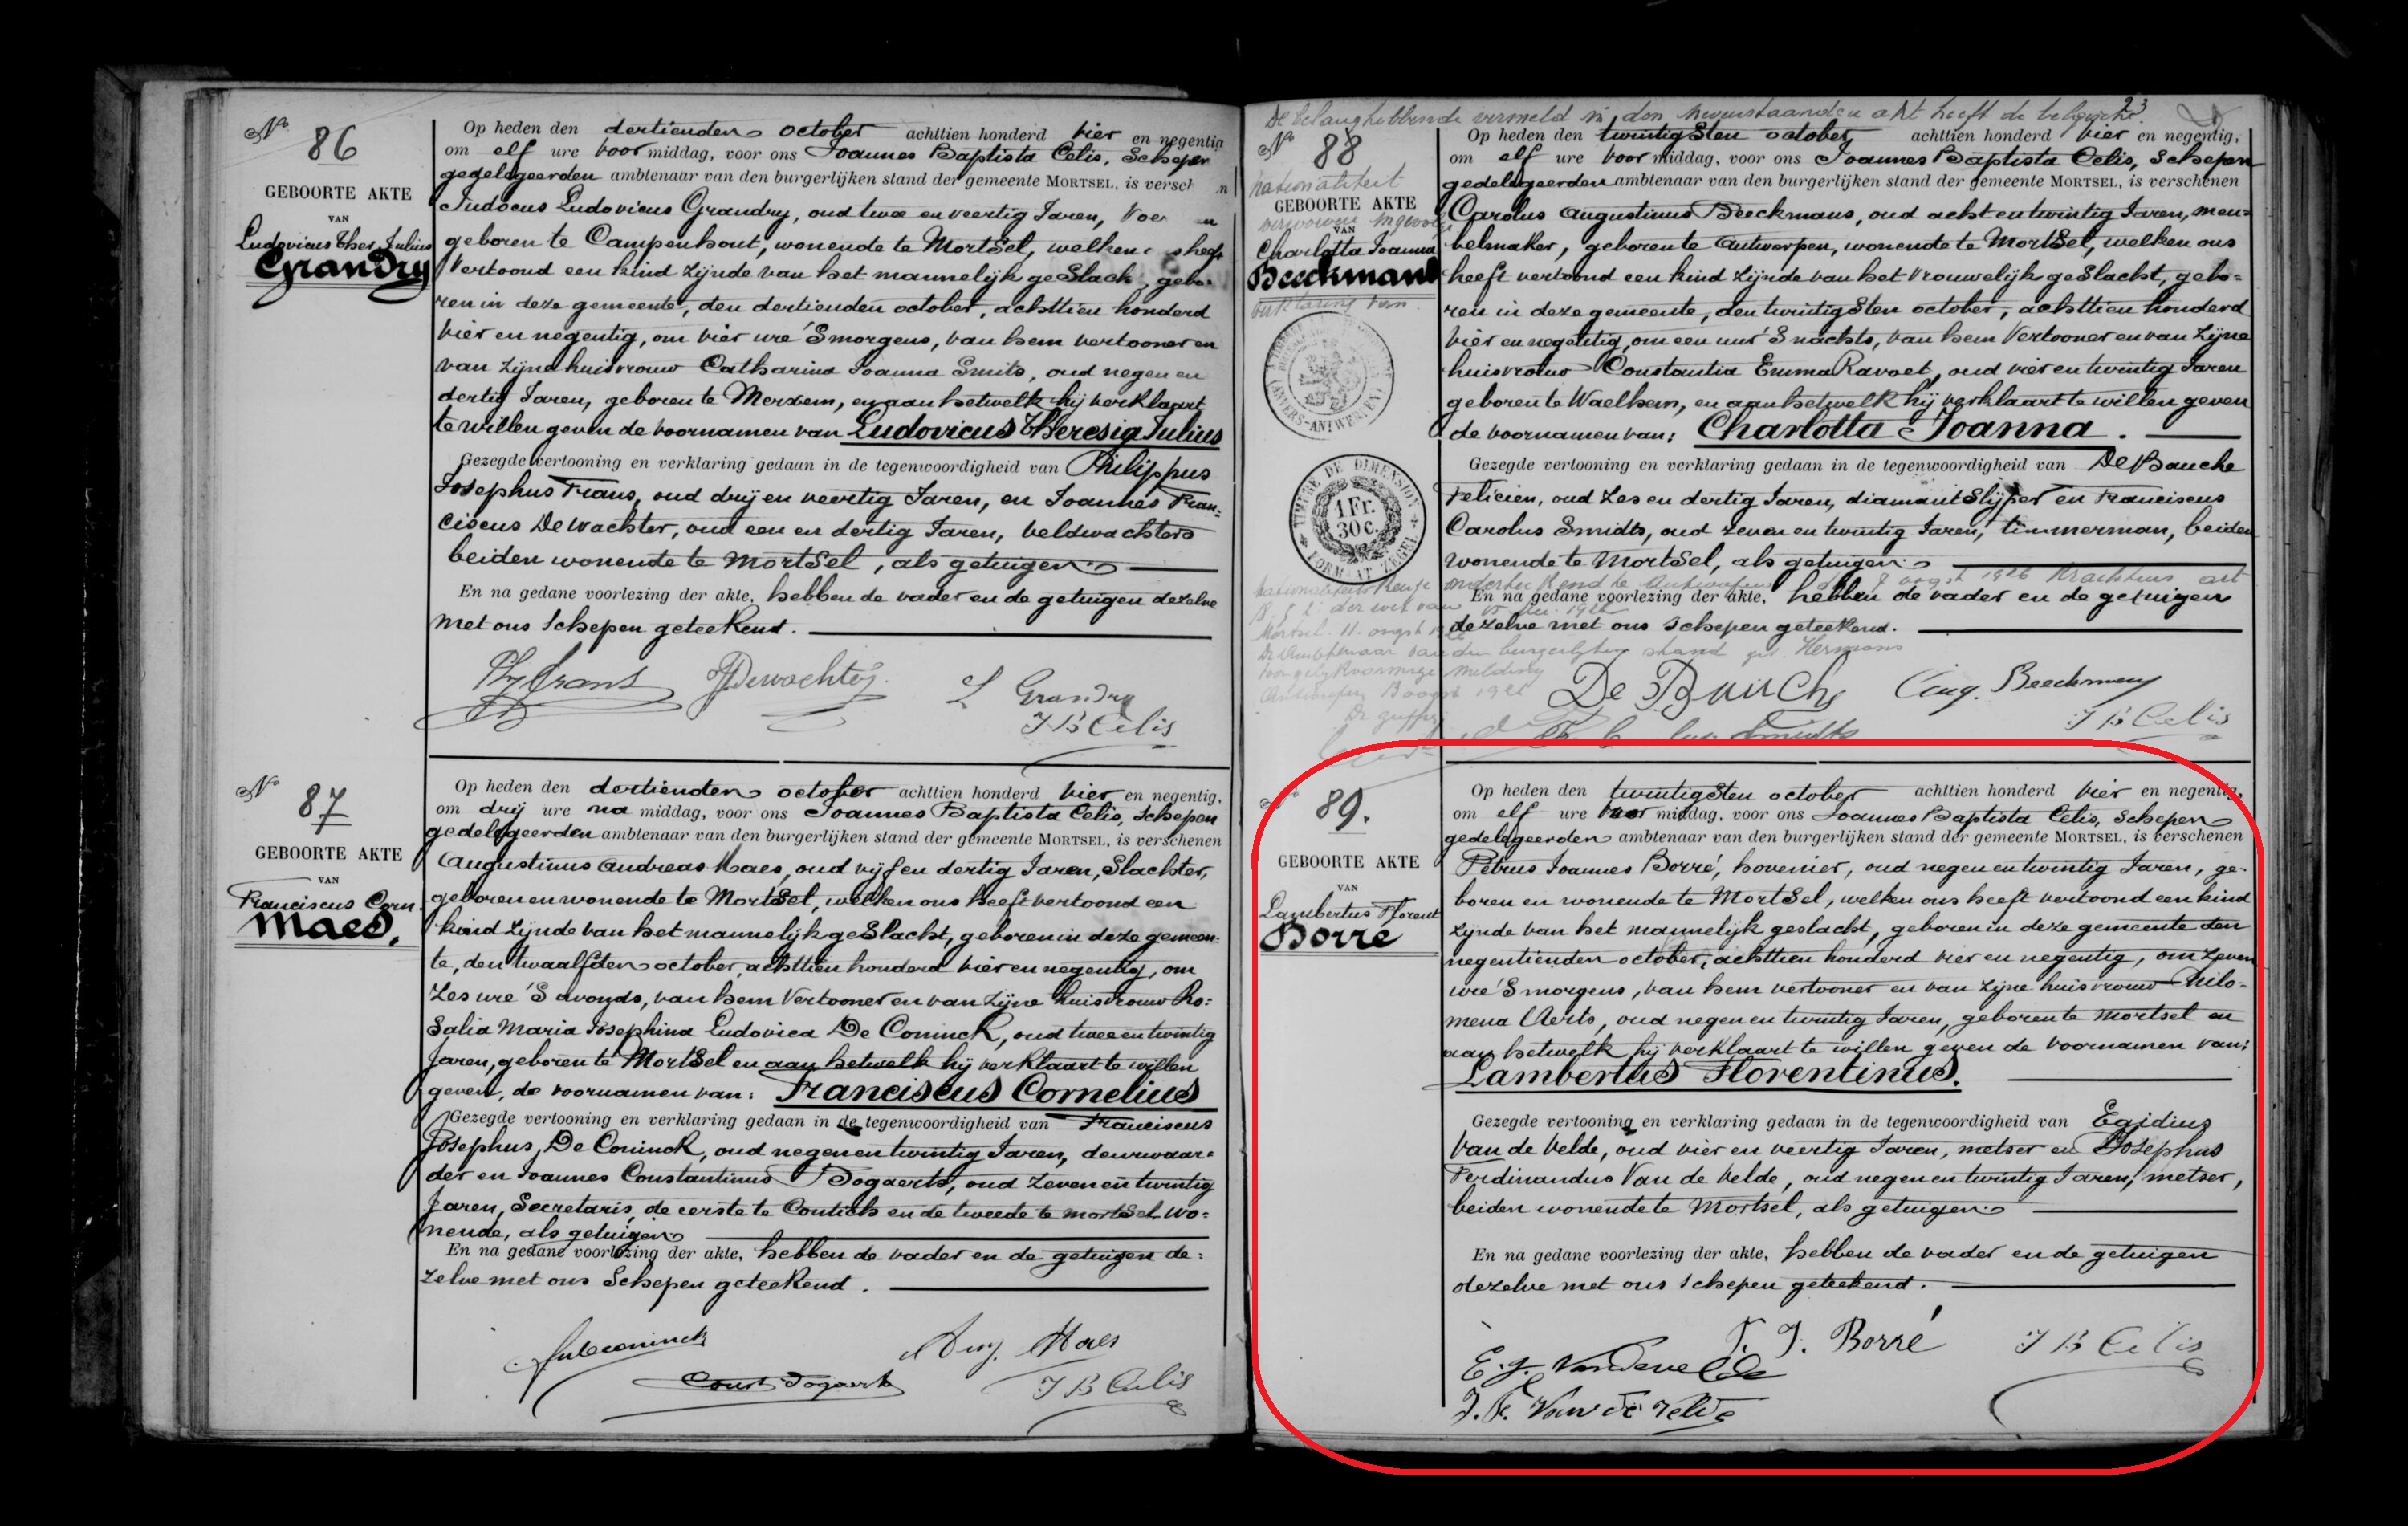 Nº 86
GEBOORTE AKTE
VAN
Ludovicus Ther. Julius
Grandry
Op heden den dertienden october achttien honderd vier en negentig
om elf ure voor middag, voor ons Joannes Baptista Celis, Schepen
gedelegeerden ambtenaar van den burgerlijken stand der gemeente MORTSEL, is versch n
Judocus Ludovicus Grandry, oud twee en veertig Jaren,
geboren te Campenhout, wonende te Mortsel, welken heeft
vertoond een kind zijnde van het mannelijk geslach, gebo-
ren in deze gemeente, den dertienden october, achttien honderd
vier en negentig, om vier ure 'Smorgens, van hem vertooner en
van zijne huisvrouw Catharina Joanna Smits, oud negen en
dertig Jaren, geboren te Merxem, en aan hetwelk hij verklaart
te willen geven de voornamen van Ludovicus Theresia Julius
Gezegde vertooning en verklaring gedaan in de tegenwoordigheid van Philippus
Josephus Frans, oud drij en veertig Jaren, en Joannes Fran-
ciscus De Wachter, oud een en dertig Jaren, veldwachters
beiden wonende te Mortsel, als getuigen
En na gedane voorlezing der akte, hebben de vader en de getuigen dezelve
met ons Schepen geteekend.
Ph J Frans JF Dewachter L Grandry
J B Celis
Nº 87
GEBOORTE AKTE
VAN
Franciscus Corn.
Maes.
Op heden den dertienden october achttien honderd vier en negentig,
om drij ure na middag, voor ons Joannes Baptista Celis, Schepen
gedelegeerden ambtenaar van den burgerlijken stand der gemeente MORTSEL, is verschenen
Augustinus Andreas Maes, oud vijf en dertig Jaren, Slachter,
geboren en wonende te Mortsel, welken ons heeft vertoond een
kind zijnde van het mannelijk geslacht, geboren in deze gemeen-
te, den twaalfden october, achttien honderd vier en negentig, om
zes ure 'S avonds, van hem vertooner en van zijne huisvrouw Ro-
salia Maria Josephina Ludovica De Coninck, oud twee en twintig
Jaren, geboren te Mortsel en aan hetwelk hij verklaart te willen
geven, de voornamen van: Franciscus Cornelius
Gezegde vertooning en verklaring gedaan in de tegenwoordigheid van Franciscus
Josephus, De Coninck, oud negen en twintig Jaren, deurwaar-
der en Joannes Constantinus Dogaerts, oud zeven en twintig
Jaren, Secretaris, de eerste te Contich en de tweede te Mortsel wo-
nende, als getuigen
En na gedane voorlezing der akte, hebben de vader en de getuigen de-
zelve met ons Schepen geteekend.
Deconinck Aug. Maes
Const Dogaerts J B Celis
De belanghebbende vermeld in den nevenstaanden akt heeft de belgische 23
nationaliteit
verworven ingevolge
verklaring van
Nº 88
GEBOORTE AKTE
VAN
Charlotta Joanna
Beeckmans
ANVERS-ANTWERPEN
TIMBRE DE DIMENSION
1 Fr.
30 c.
FORMAAT ZEGEL
Op heden den twintigsten october, achttien honderd vier en negentig,
om elf ure voor middag, voor ons Joannes Baptista Celis, Schepen
gedelegeerden ambtenaar van den burgerlijken stand der gemeente MORTSEL, is verschenen
Carolus Augustinus Beeckmans, oud acht en twintig Jaren, meu-
belmaker, geboren te Antwerpen, wonende te Mortsel, welken ons
heeft vertoond een kind zijnde van het vrouwelijk geslacht, gebo-
ren in deze gemeente, den twintigsten october, achttien honderd
vier en negentig, om een uur 'S nachts, van hem vertooner en van zijne
huisvrouw Constantia Emma Ravoet, oud vier en twintig Jaren
geboren te Waelhem, en aan hetwelk hij verklaart te willen geven
de voornamen van: Charlotta Joanna.
Gezegde vertooning en verklaring gedaan in de tegenwoordigheid van De Bauche
Felicien, oud zes en dertig Jaren, diamantslijper en Franciscus
Carolus Smidts, oud zeven en twintig Jaren, timmerman, beiden
wonende te Mortsel, als getuigen
En na gedane voorlezing der akte, hebben de vader en de getuigen
dezelve met ons Schepen geteekend.
Mortsel. 11. oogst
De Ambtenaar van den burgerlijken stand get. Hermans
Voor gelijkvormige melding
De Bauche Aug. Beeckmans
J B Celis
Smidts
Nº 89.
GEBOORTE AKTE
VAN
Lambertus Florent
Borré
Op heden den twintigsten october achttien honderd vier en negentig,
om elf ure voor middag, voor ons Joannes Baptista Celis, Schepen
gedelegeerden ambtenaar van den burgerlijken stand der gemeente MORTSEL, is verschenen
Petrus Joannes Borré, hovenier, oud negen en twintig Jaren, ge-
boren en wonende te Mortsel, welken ons heeft vertoond een kind
zijnde van het mannelijk geslacht, geboren in deze gemeente den
negentienden october, achttien honderd vier en negentig, om zeven
ure 'Smorgens, van hem vertooner en van zijne huisvrouw Philo-
mena Aerts, oud negen en twintig Jaren, geboren te Mortsel en
aan hetwelk hij verklaart te willen geven de voornamen van:
Lambertus Florentinus.
Gezegde vertooning en verklaring gedaan in de tegenwoordigheid van Egidius
Van de Velde, oud vier en veertig Jaren, metser en Josephus
Ferdinandus Van de Velde, oud negen en twintig Jaren, metser,
beiden wonende te Mortsel, als getuigen
En na gedane voorlezing der akte, hebben de vader en de getuigen
dezelve met ons Schepen geteekend.
P. J. Borré J B Celis
E. J. Vandevelde
J. F. Van de Velde